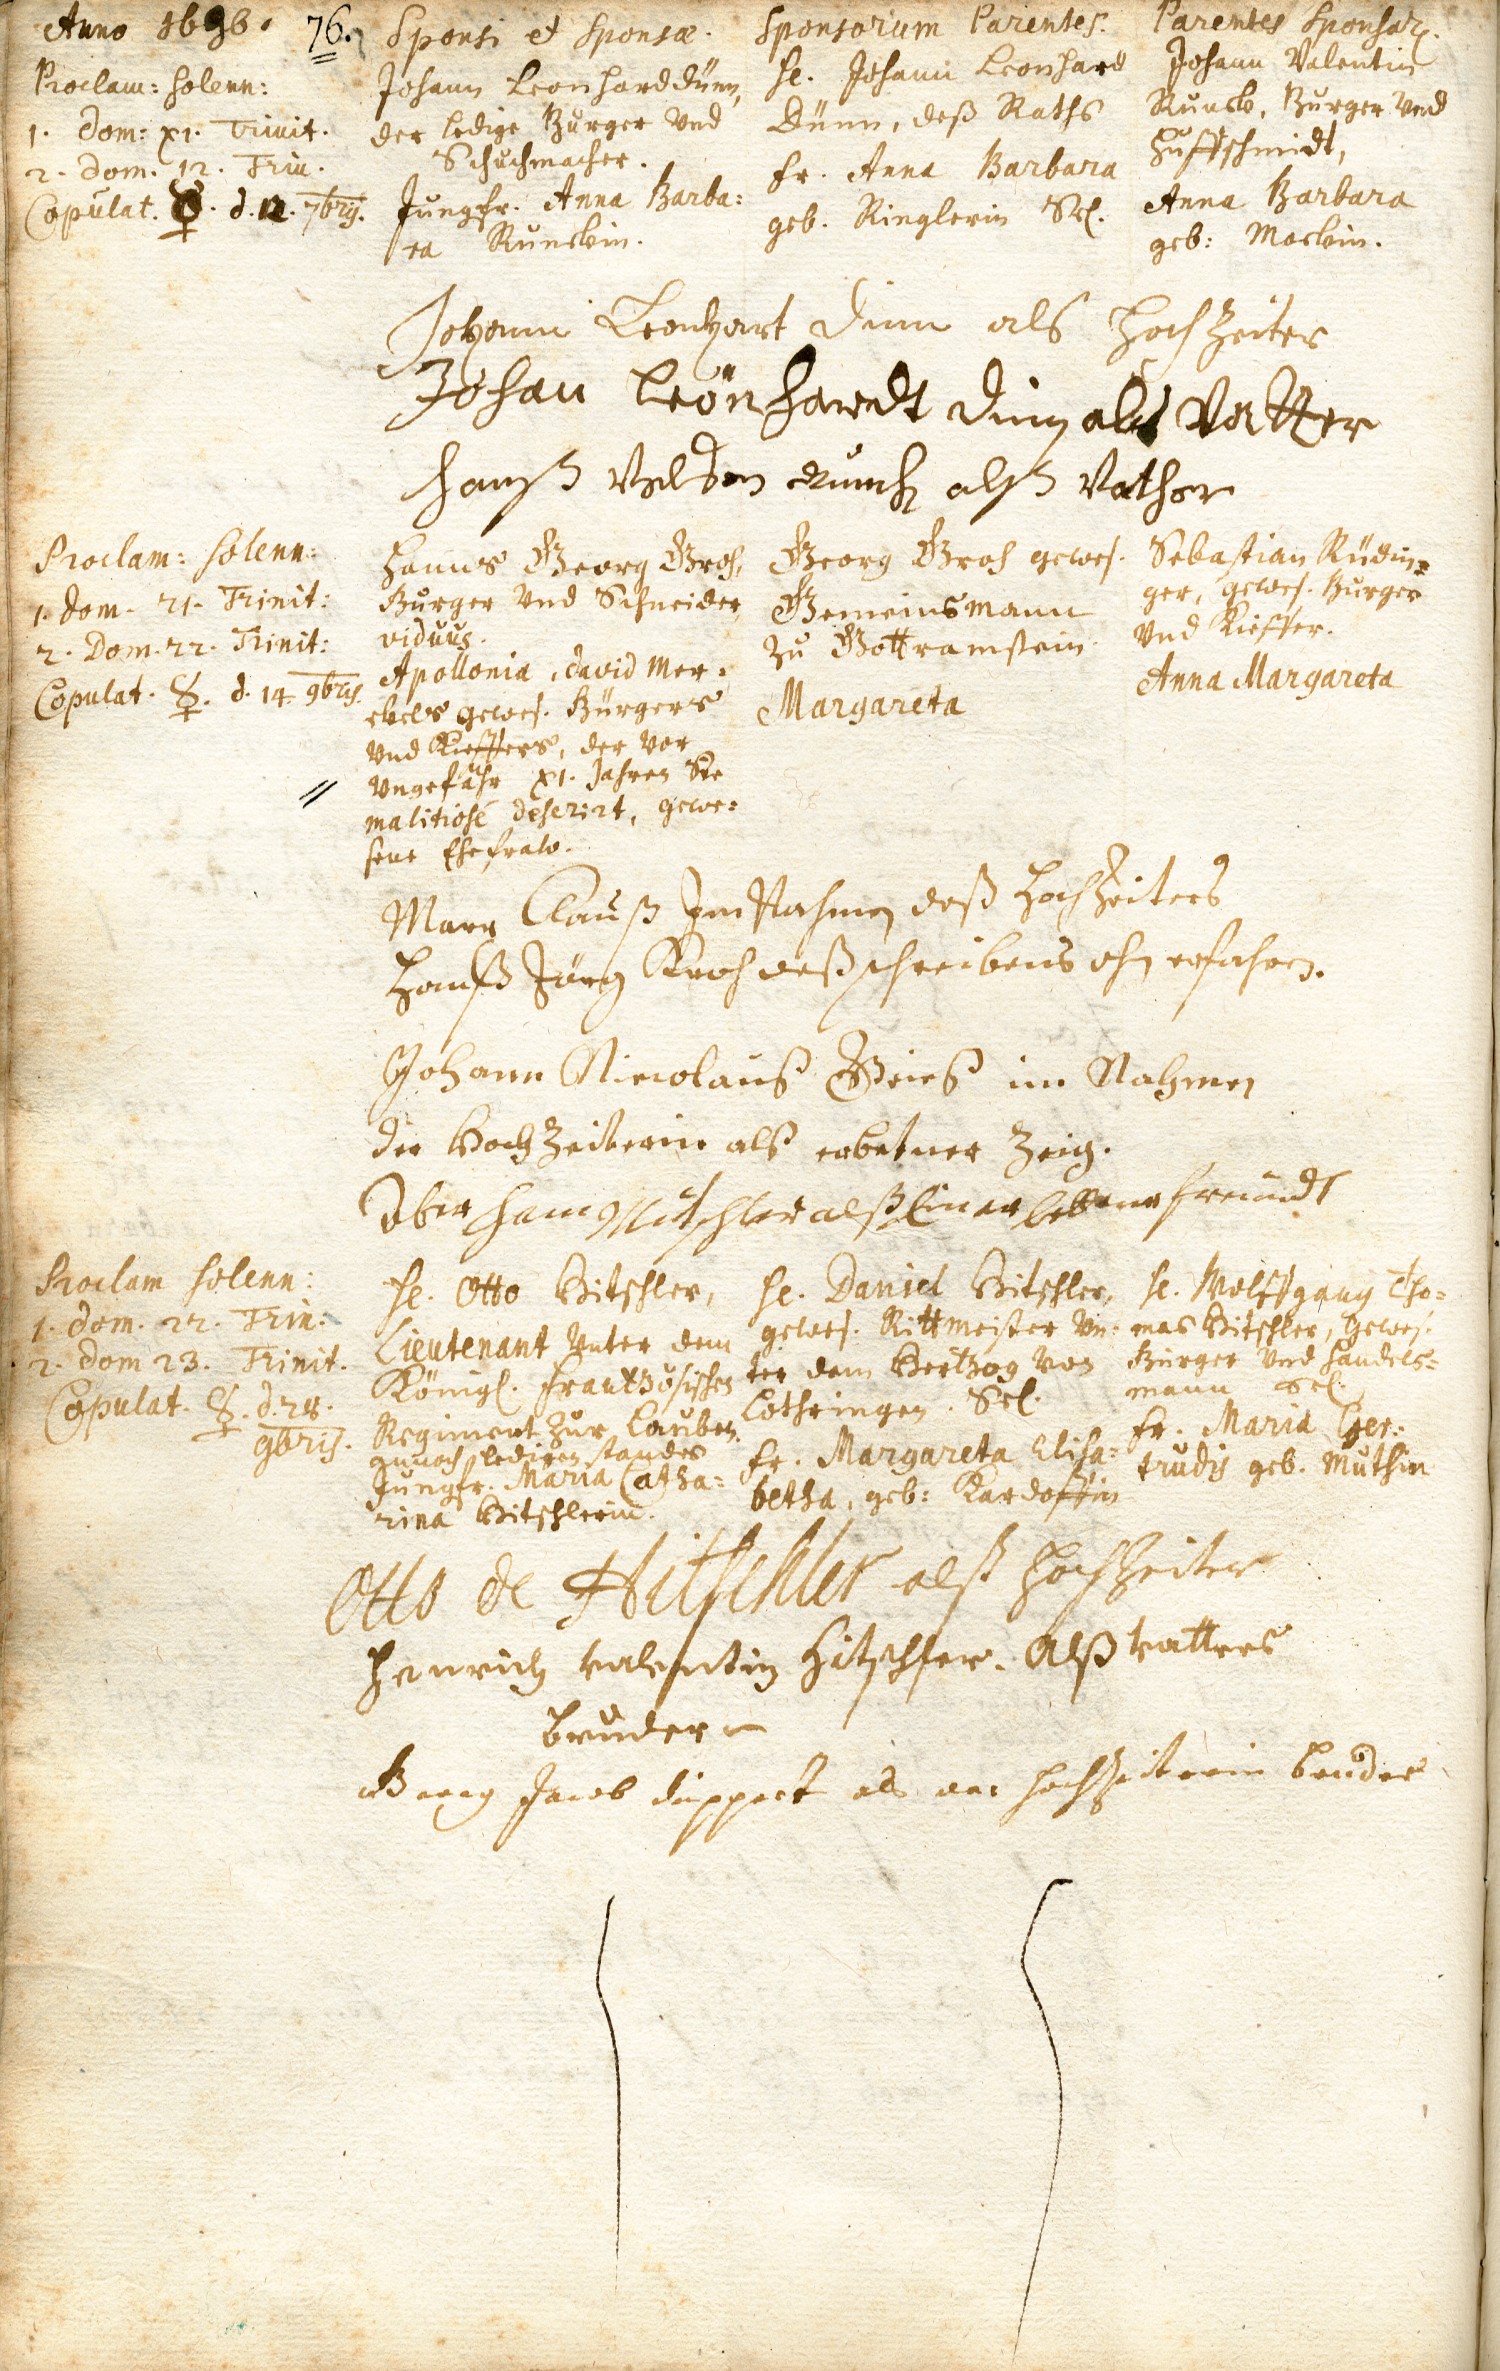 Anno 1696.
76.
Sponsi et Sponsæ.
Sponsorum Parentes.
Parentes Sponsar.
Proclam: solenn:
1. Dom: XI. Trinit.
2. Dom. 12. Trin.
Copulat. ☿. d. 12. 7bris.
Johann Leonhard Dünn,
der ledige Burger und
Schuchmacher.
Jungfr. Anna Barba:
ra Runckin.
Hr. Johann Leonhard
Dünn, deß Raths
Fr. Anna Barbara
geb. Ringlerin Sel.
Johann Valentin
Runck, Burger und
Huffschmidt,
Anna Barbara
geb: Mockin.
Johann Leonhart Dinn als Hochzeiter
Johan Leonhardt Dinn als Vatter
Hanß Velden Runck alß Vather
Proclam: solenn:
1. Dom. 21. Trinit:
2. Dom. 22. Trinit:
Copulat. ☿. d. 14. 9bris.
Hanns Georg Groh,
Burger und Schneider
viduus.
Apollonia, David Mer:
ckels gewes. Burgers
und Kieffers, der vor
ungefähr XI. Jahren Sie
malitiosé deserirt, gewe:
sene Ehefraw.
Georg Groh gewes.
Gemeinsmann
zu Gottramstein.
Margareta
Sebastian Rüdin:
ger, gewes. Burger
und Kieffer.
Anna Margareta
Marx Clauß Im Nahmen deß Hochzeiters
Hanß Jörg Kroh deß schreibens ohn erfahren.
Johann Nicolauß Weiß im Nahmen
der Hochzeiterin alß erbetner Zeig.
Proclam solenn:
1. Dom. 22. Trin:
2. Dom 23. Trinit.
Copulat. ☿. d. 28.
9bris.
Hr. Otto Hitschler,
Lieutenant unter dem
Königl. Frantzösischen
Regiment zur Lauben
annoch ledigen standes
Jungfr. Maria Catha:
rina Hitschlerin.
Hr. Daniel Hitschler,
gewes. Rittmeister un:
ter dem Hertzog von
Lothringen. Sel.
Fr. Margareta Elisa:
betha, geb: Kardoffin
Hr. Wolffgang Tho:
mas Hitschler, gewes.
Burger und Handels:
mann Sel.
Fr. Maria Ger:
trudis geb. Muthin
Otto de Hitschler alß Hochzeiter
Henrich Valentin Hitschler. Alß Vatters
bruder
Georg Jacob Dippert als der Hochzeiterin bruder